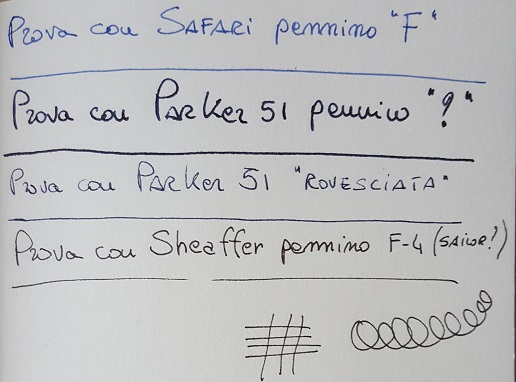 Prova con SAFARi pennino "F"
Prova con Parker 51 pennino "?"
Prova con Parker 51 "ROVESCIATA"
Prova con Sheaffer pennino F-4 (SAiLOR?)